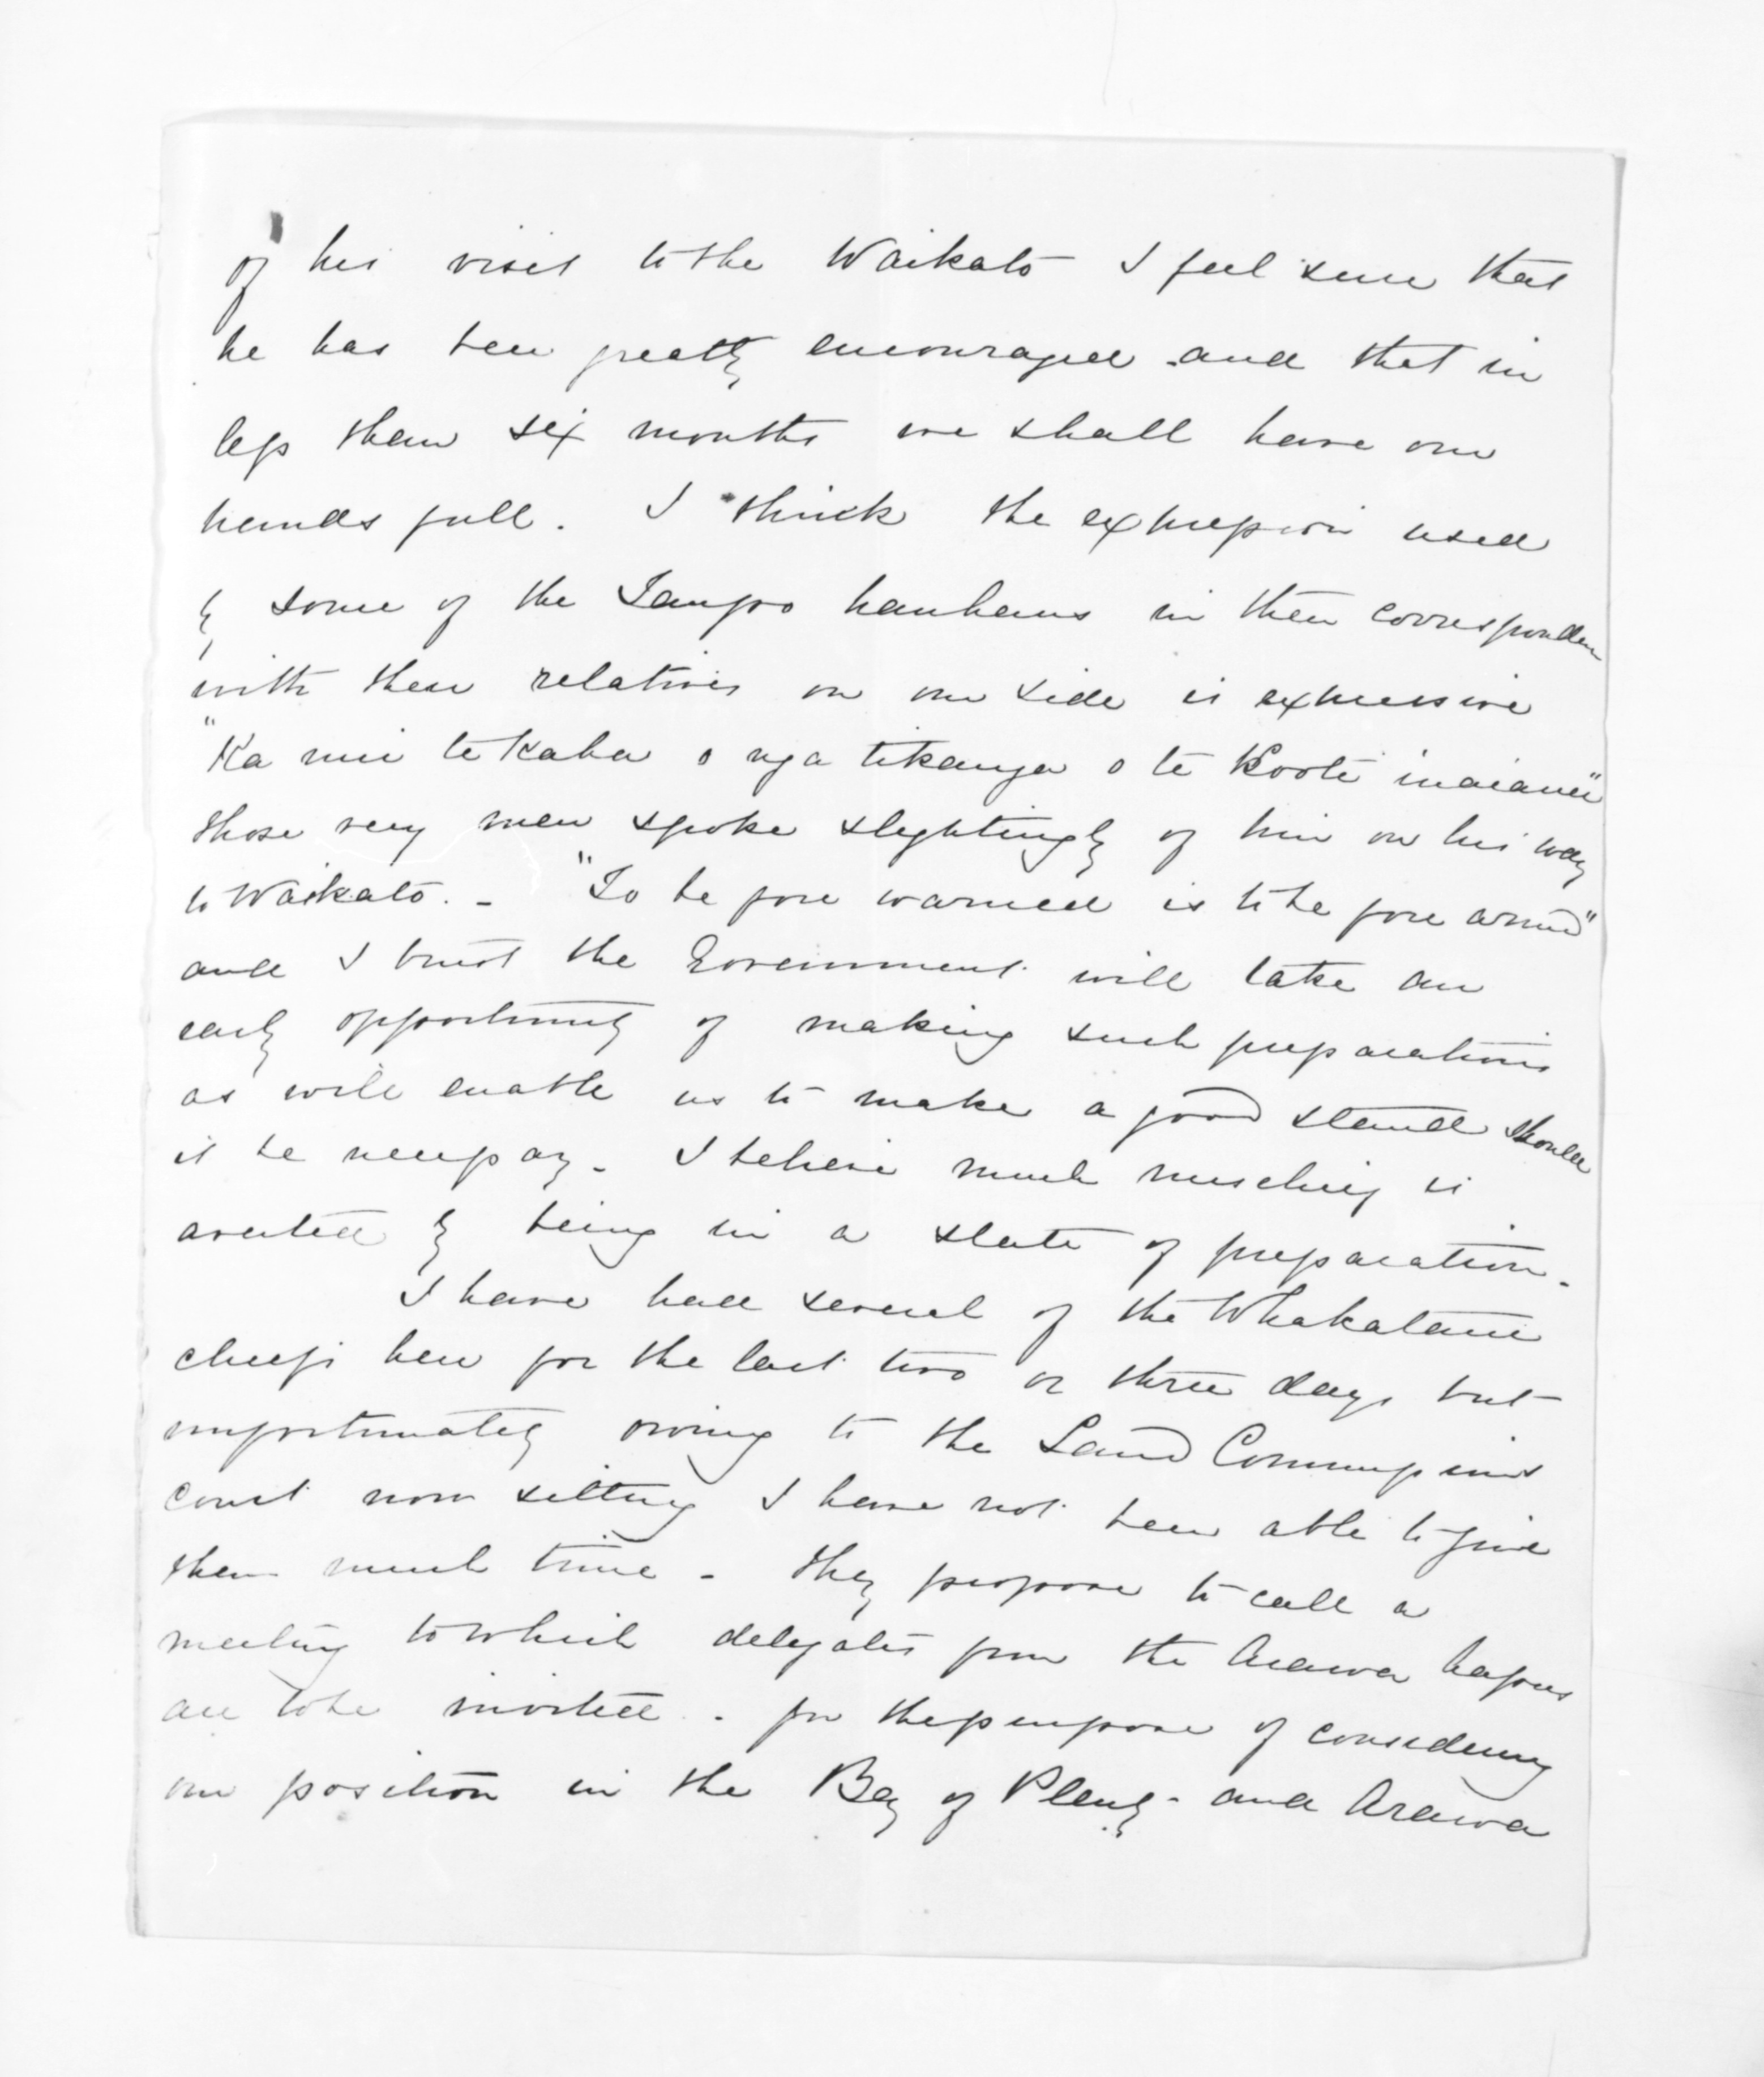 of his visit to the Waikato I feel sure that
he has been greatly encouraged and that in
less than six months we shall have our
hands full. I think the expression used
by some of the Taupo hauhaus in their corresponden
with their relatives on our side is expressive
"Ka nui te kaha o nga tikanga o te Kooti inaianei"
those very men spoke slightingly of him on his way
to Waikato. - "To be fore warned is to be fore armed"
and I trust the Government will take an
early opportunity of making such preparations
as will enable us to make a good stand should
it be necessary. I believe much mischief is
averted by being in a state of preparation.
I have had several of the Whakatane
chiefs here for the last two or three days but
unfortunately owing to the Land Commissions
court now sitting I have not been able to give
them much time - they propose to call a
meeting to which delegates from the Arawa hapus
are to be invited - for the purpose of considering
our position in the Bay of Plenty - and Arawa